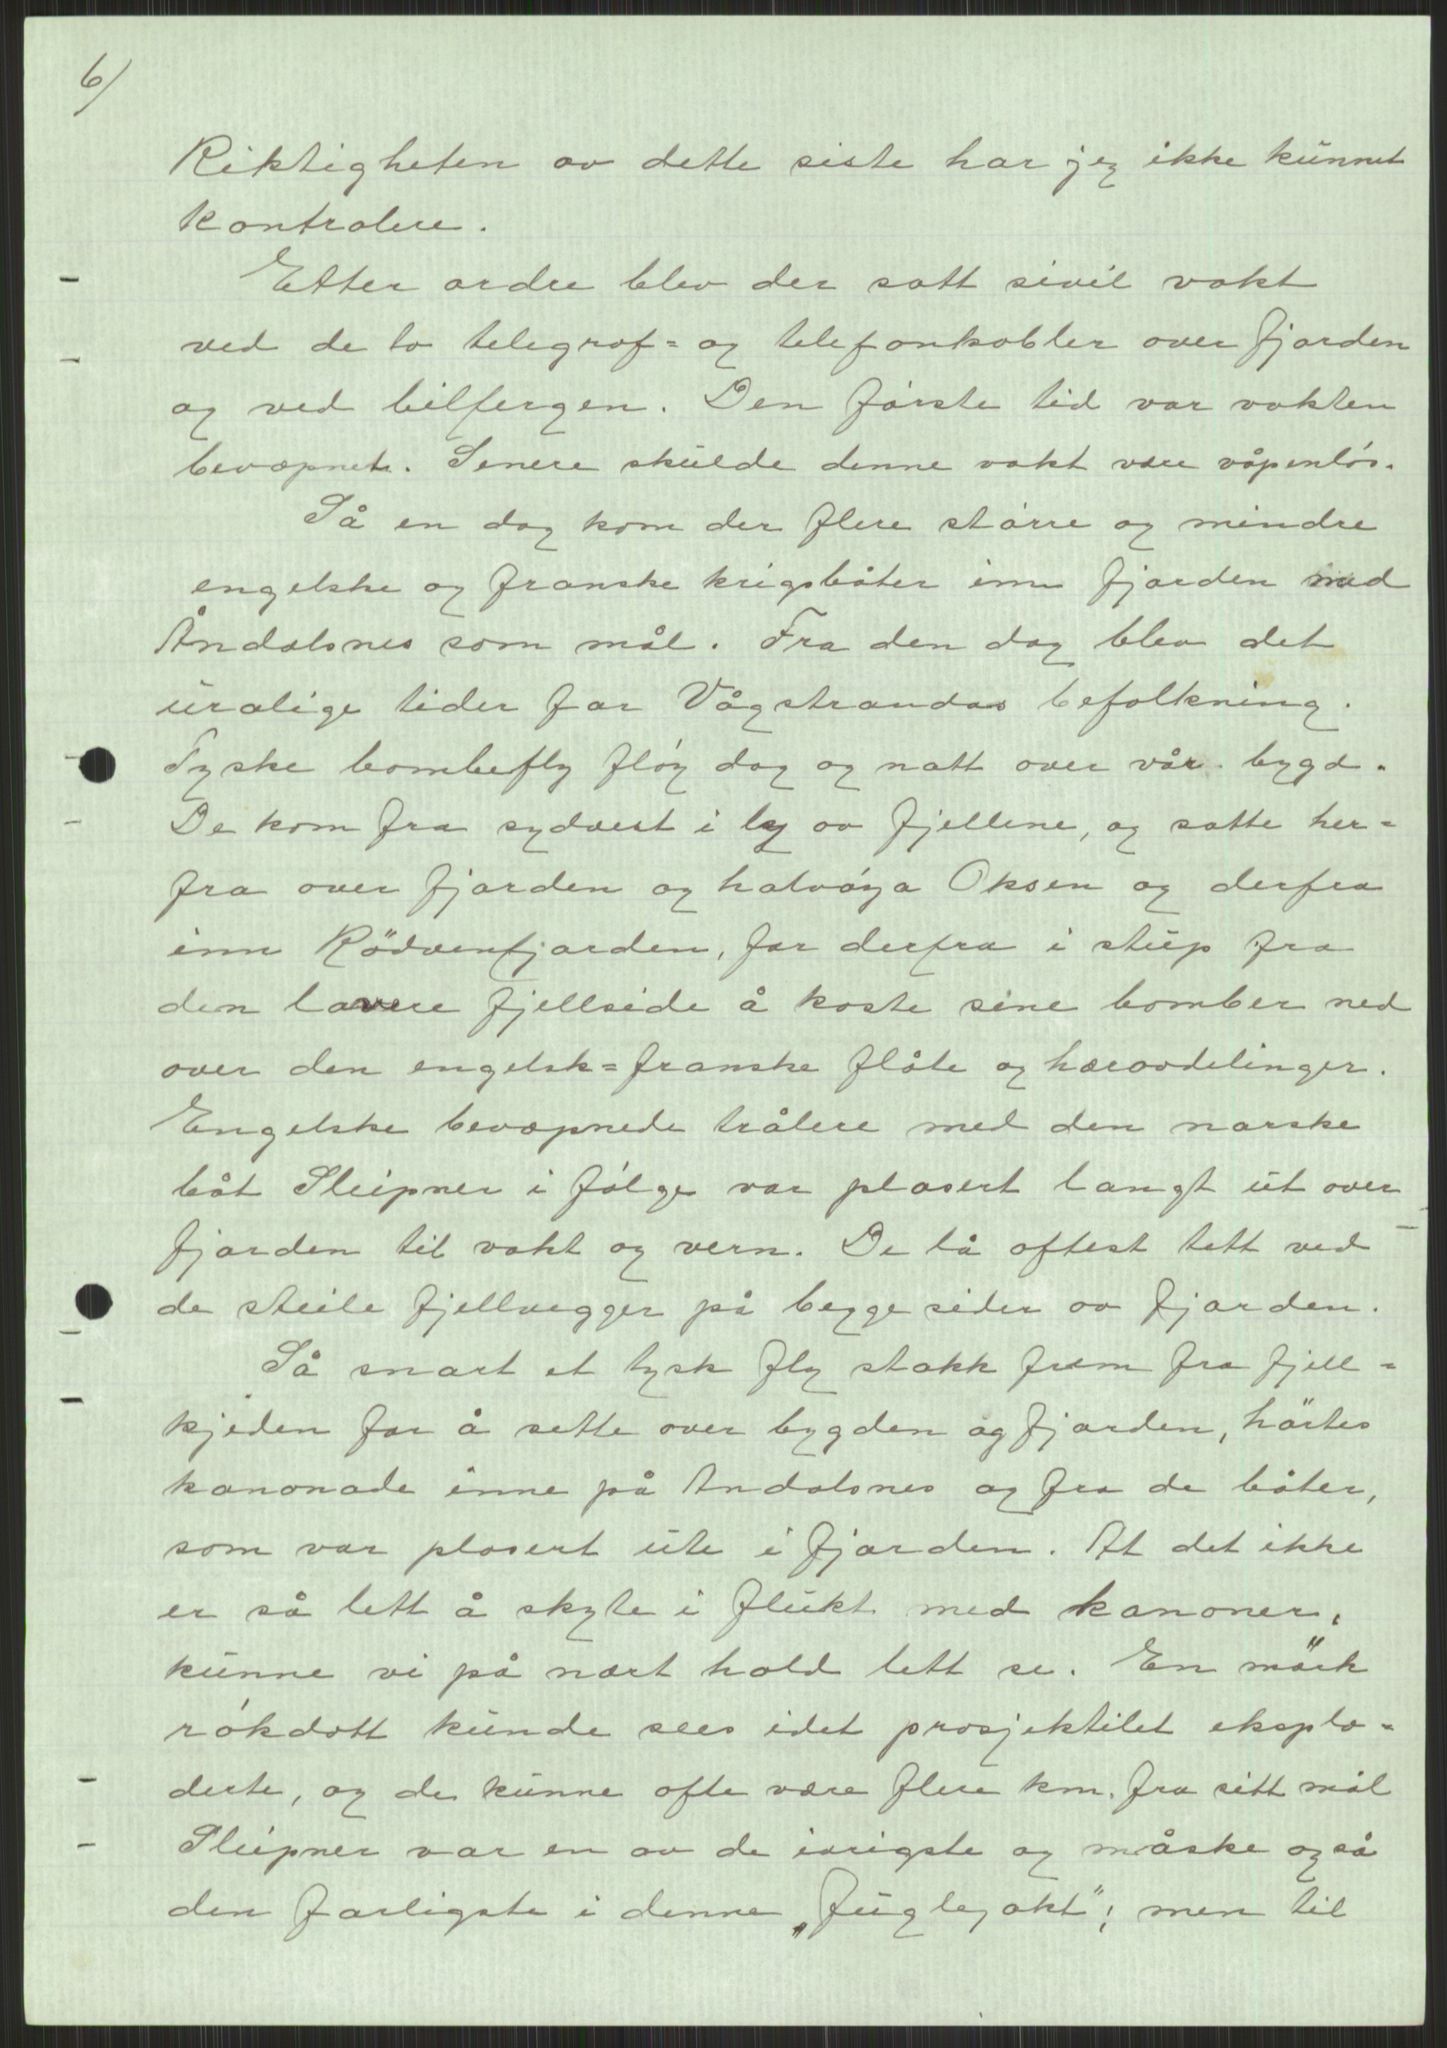 6/
Riktigheten av dette siste har jeg ikke kunnet
kontrolere.
Etter ordre blev der satt sivil vakt
ved de to telegraf= og telefonkabler over fjorden
og ved bilfergen. Den første tid var vakten
bevæpnet. Senere skulde denne vakt være våpenløs.
Så en dag kom der flere større og mindre
engelske og franske krigsbåter inn fjorden med
Åndalsnes som mål. Fra den dag blev det
urolige tider for Vågstrandas befolkning.
Tyske bombefly fløy dag og natt over vår bygd.
De kom fra sydvest i ly av fjellene, og satte her=
fra over fjorden og halvøya Oksen og derfra
inn Rödvenfjorden, for derfra i stup fra
den lavere fjellside å kaste sine bomber ned
over den engelsk=franske flåte og hæravdelinger.
Engelske bevæpnede trålere med den norske
båt Sleipner i følge var plasert langt ut over
fjorden til vakt og vern. De lå oftest tett ved
de steile fjellvegger på begge sider av fjorden.
Så snart et tysk fly stakk frem fra fjell=
kjeden for å sette over bygden og fjorden, hörtes
kanonade inne på Åndalsnes og fra de båter,
som var plasert ute i fjorden. At det ikke
er så lett å skyte i flukt med kanoner,
kunne vi på nært hold lett se. En mörk
røkdott kunde sees idet prosjektilet eksplo=
derte, og de kunne ofte være flere km. fra sitt mål
Sleipner var en av de ivrigste og måske også
den farligste i denne „fuglejakt", men til